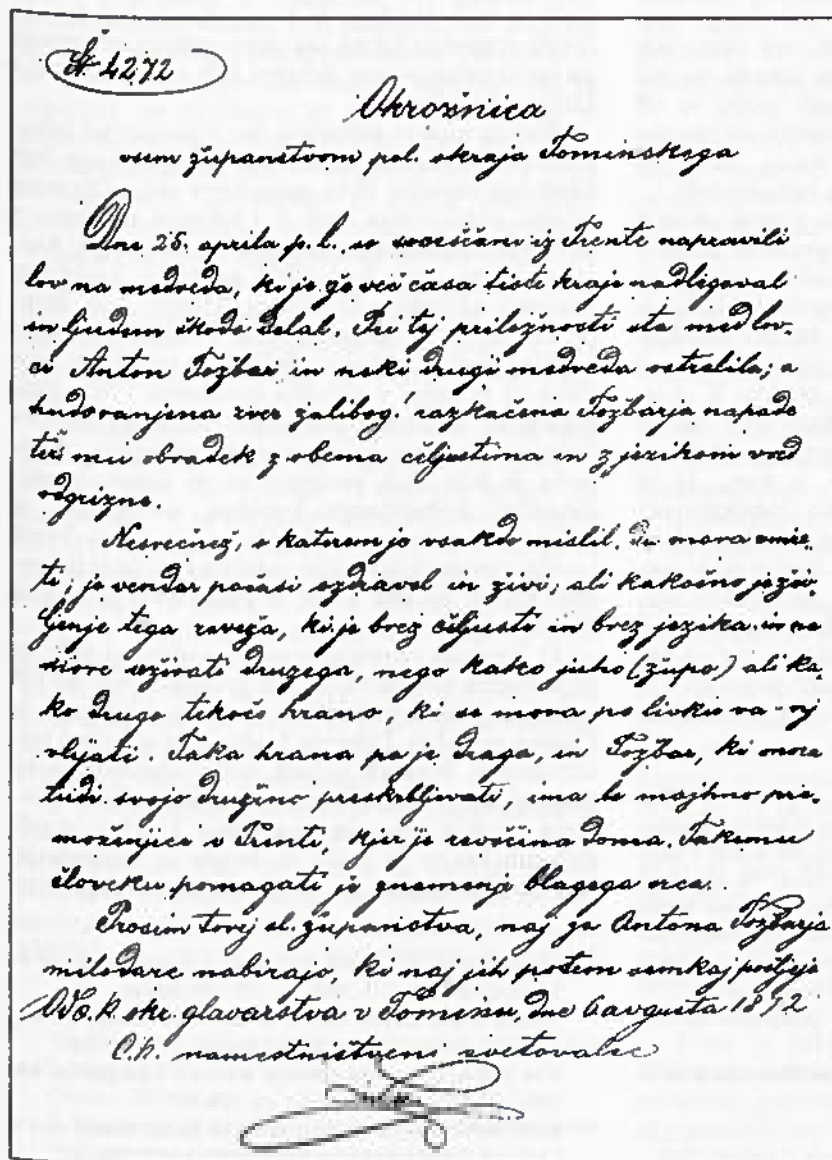 Št 4272
Okrožnica
vsem županstvom pol. okraja Tominskega
Dne 25. aprila p. l. so soseščani iz Trente napravili
lov na medveda, ki je že več časa tiste kraje nadlegoval
in ljudem škodo delal. Pri tej priložnosti sta med lov-
ci Anton Tožbar in neki drugi medveda vstrelila; a
hudo ranjena zver zalibog! razkačena Tožbarja napade
ter mu obradek z obema čeljustima in z jezikom vred
odgrizne.
Nesrečnež, o katerem je vsakdo mislil, da mora umre-
ti; je vendar počasi ozdravel in živi; ali kakošno je živ-
ljenje tega reveža, ki je brez čeljusti in brez jezika in ne
more vživati drugega, nego kako juho (župo) ali ka-
ko drugo tekočo hrano, ki se mora po livku va-nj
vlijati. Taka hrana pa je draga, in Tožbar, ki mora
tudi svojo družino preskrbljevati, ima le majhno pre-
moženjice v Trenti, kjer je revščina doma. Takemu
človeku pomagati je znamenje blagega srca.
Prosim torej sl. županstva, naj za Antona Tožbarja
milodare nabirajo, ki naj jih potem semkaj pošljejo
Od c. k. okr. glavarstva v Tominu, dne 6 avgusta 1872
C. k. namestništveni svetovalec